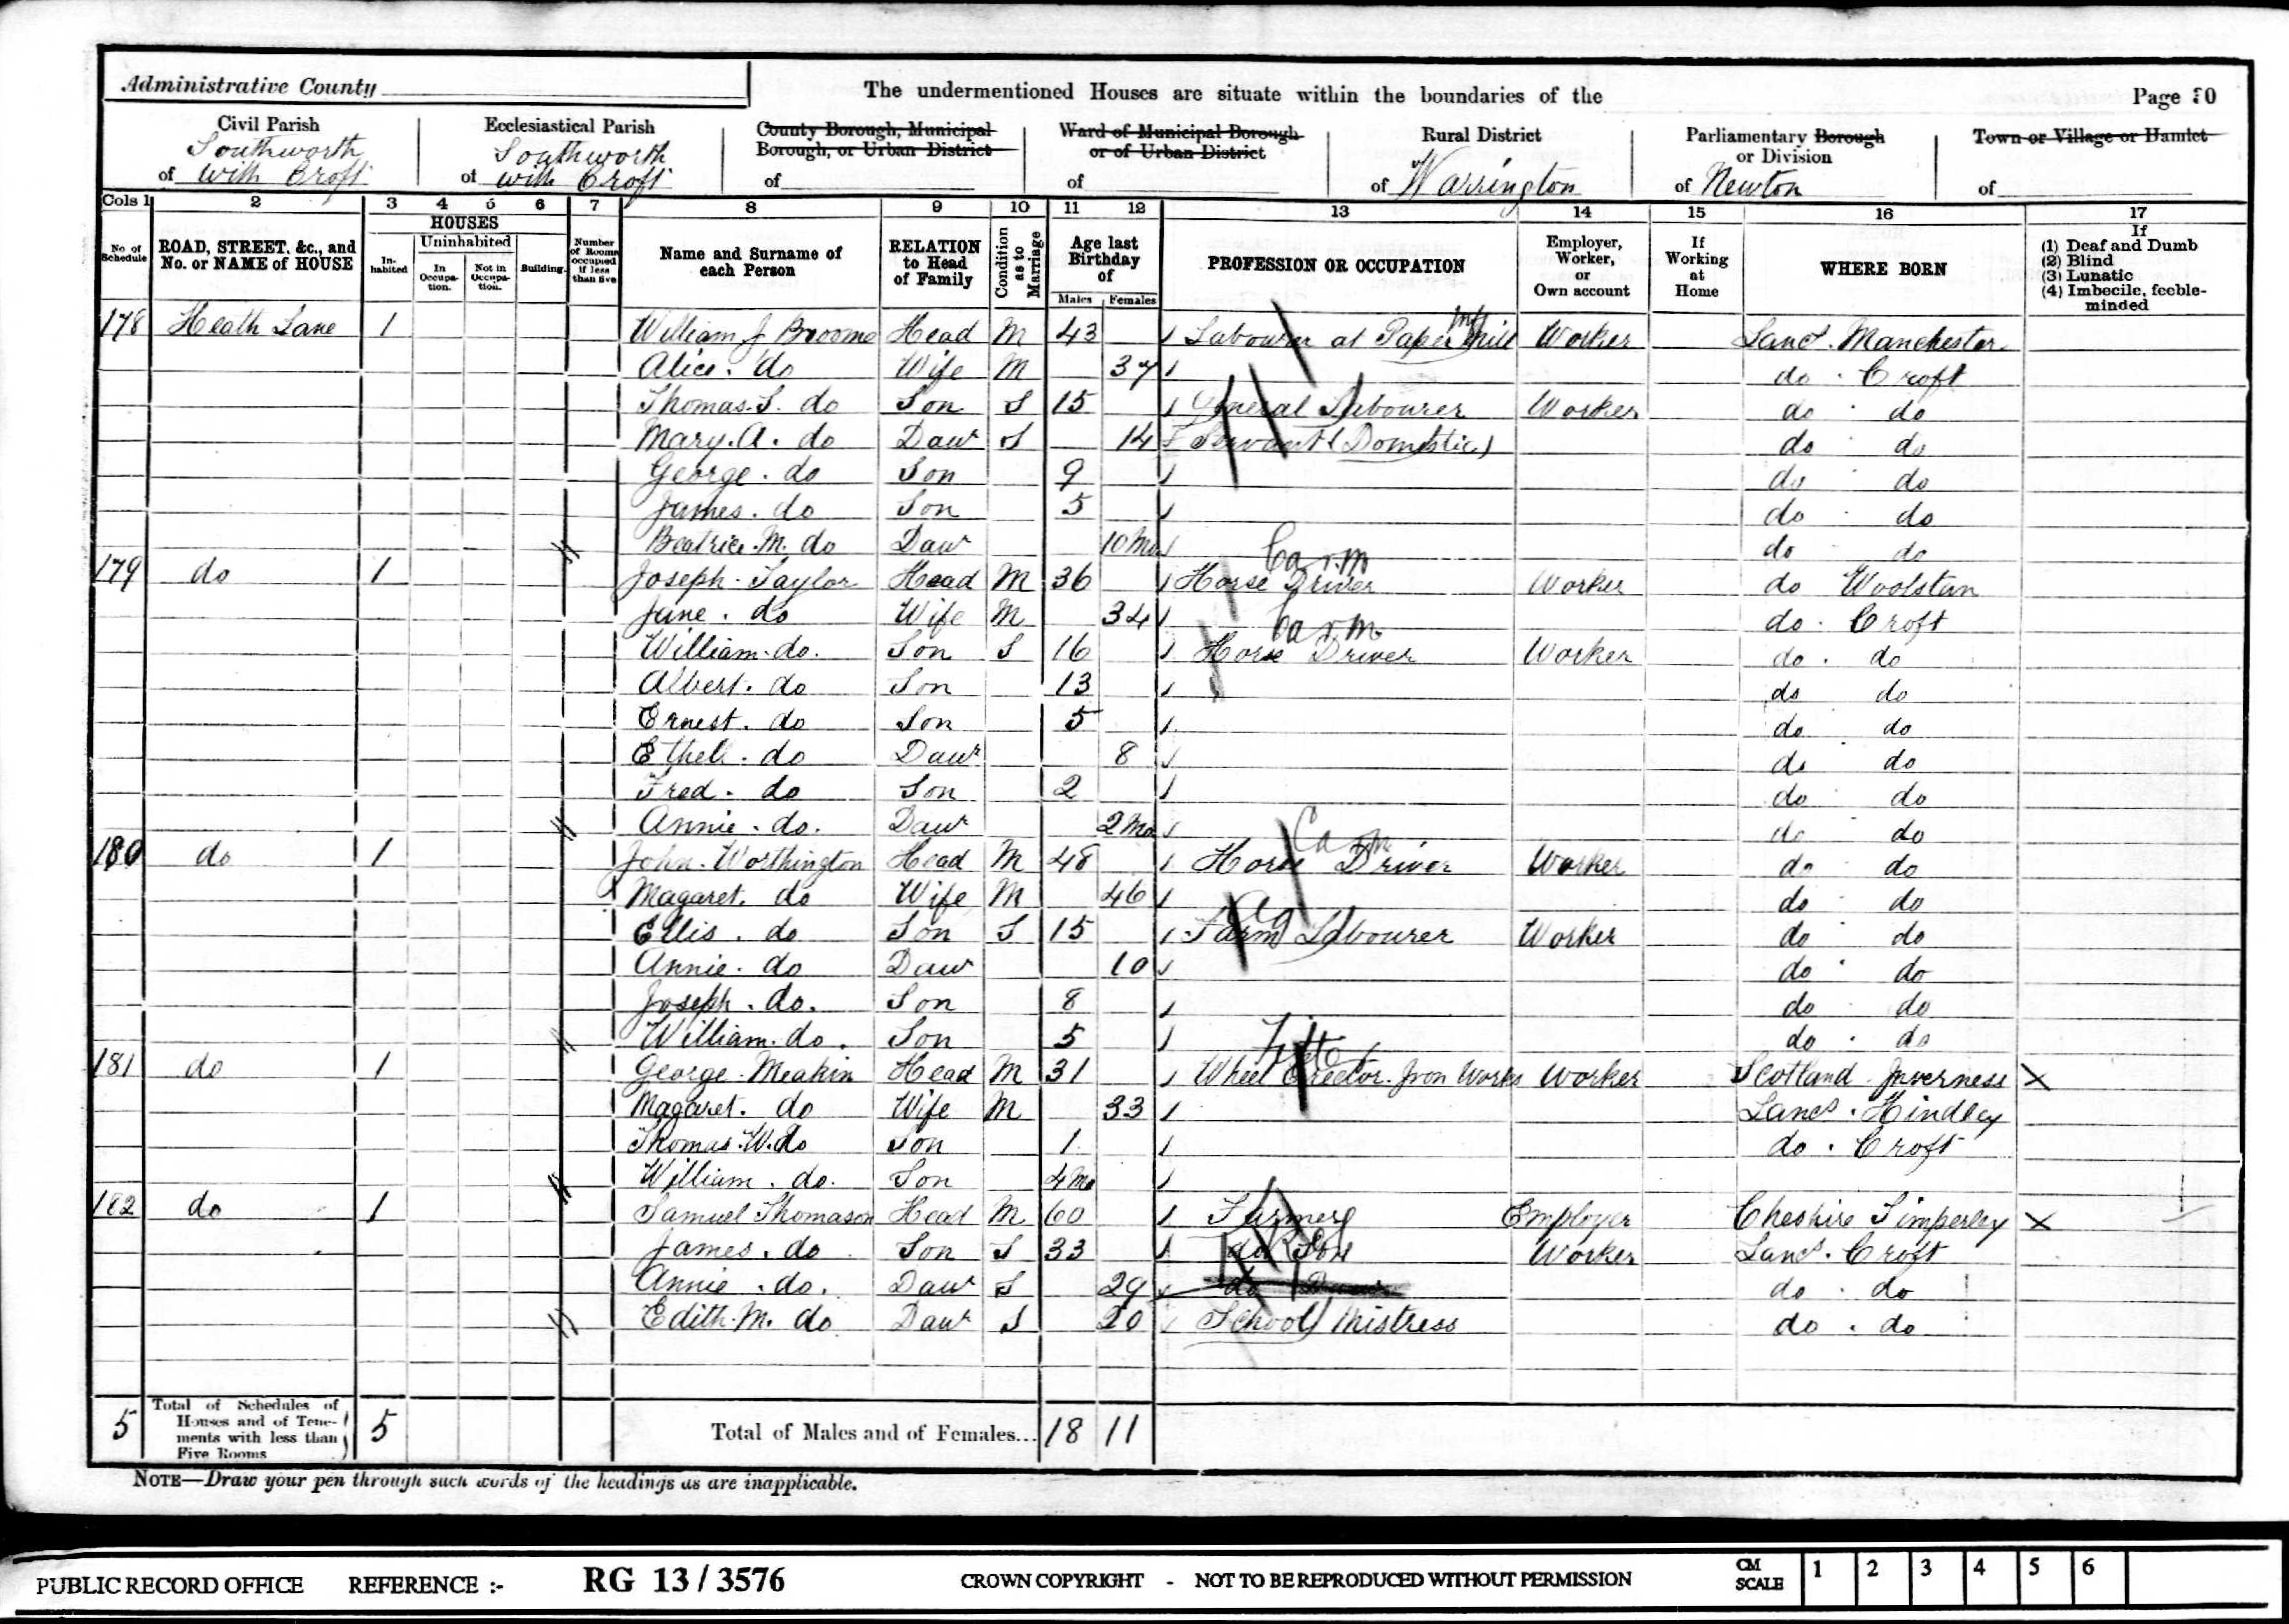 Administrative County
The undermentioned Houses are situate within the boundaries of the
Page 20
Civil Parish
of Southworth with Croft
Ecclesiastical Parish
of Southworth with Croft
County Borough, Municipal Borough, or Urban District
of
Ward of Municipal Borough or of Urban District
of
Rural District
of Warrington
Parliamentary Borough or Division
of Newton
Town or Village or Hamlet
of
Cols 1 2 3 4 5 6 7 8 9 10 11 12 13 14 15 16 17
No. of Schedule
ROAD, STREET, &c., and No. or NAME of HOUSE
HOUSES
Inhabited
Uninhabited
In Occupation.
Not in Occupation.
Building.
Number of Rooms occupied if less than five
Name and Surname of each Person
RELATION to Head of Family
Condition as to Marriage
Age last Birthday of
Males Females
PROFESSION OR OCCUPATION
Employer, Worker, or Own account
If Working at Home
WHERE BORN
If
(1) Deaf and Dumb
(2) Blind
(3) Lunatic
(4) Imbecile, feeble-minded
178 Heath Lane 1 William J Broome Head M 43 Labourer at Paper Mill Worker Lancs. Manchester
Alice. do Wife M 37 do. Croft
Thomas. S. do Son S 15 General Labourer Worker do. do
Mary. A. do Daur S 14 Servant (Domestic) do do
George. do Son 9 do do
James. do Son 5 do. do
Beatrice. M. do Daur 10 Mo do do
179 do 1 Joseph. Taylor Head M 36 Horse Driver Carm Worker do Woolstan
Jane. do Wife M 34 do. Croft
William. do. Son S 16 Horse Driver Carm. Worker do. do
Albert. do Son 13 do do
Ernest. do Son 5 do do
Ethel. do Daur 8 do do
Fred. do Son 2 do do
Annie. do. Daur 2 Mo do do
180 do 1 John. Worthington Head M 48 Horse Driver Worker do do
Magaret. do Wife M 46 do do
Ellis. do Son S 15 Farm Labourer Ag Worker do do
Annie. do Daur 10 do do
Joseph. do. Son 8 do do
William. do. Son 5 do. do
181 do 1 George. Meakin Head M 31 Wheel Erector. Iron Works Worker Scotland Inverness X
Magaret. do Wife M 33 Lancs. Hindley
Thomas. W. do Son 1 do. Croft
William. do. Son 4 Mo
182 do 1 Samuel Thomason Head M 60 Farmer Employer Cheshire Timperley X
James. do Son S 33 do Son Worker Lancs. Croft
Annie. do. Daur S 29 do Daur do. do
Edith. M. do Daur S 20 School Mistress do. do
5 Total of Schedules of Houses and of Tenements with less than Five Rooms 5 Total of Males and of Females... 18 11
NOTE—Draw your pen through such words of the headings as are inapplicable.
PUBLIC RECORD OFFICE REFERENCE :- RG 13 / 3576 CROWN COPYRIGHT - NOT TO BE REPRODUCED WITHOUT PERMISSION CM SCALE 1 2 3 4 5 6